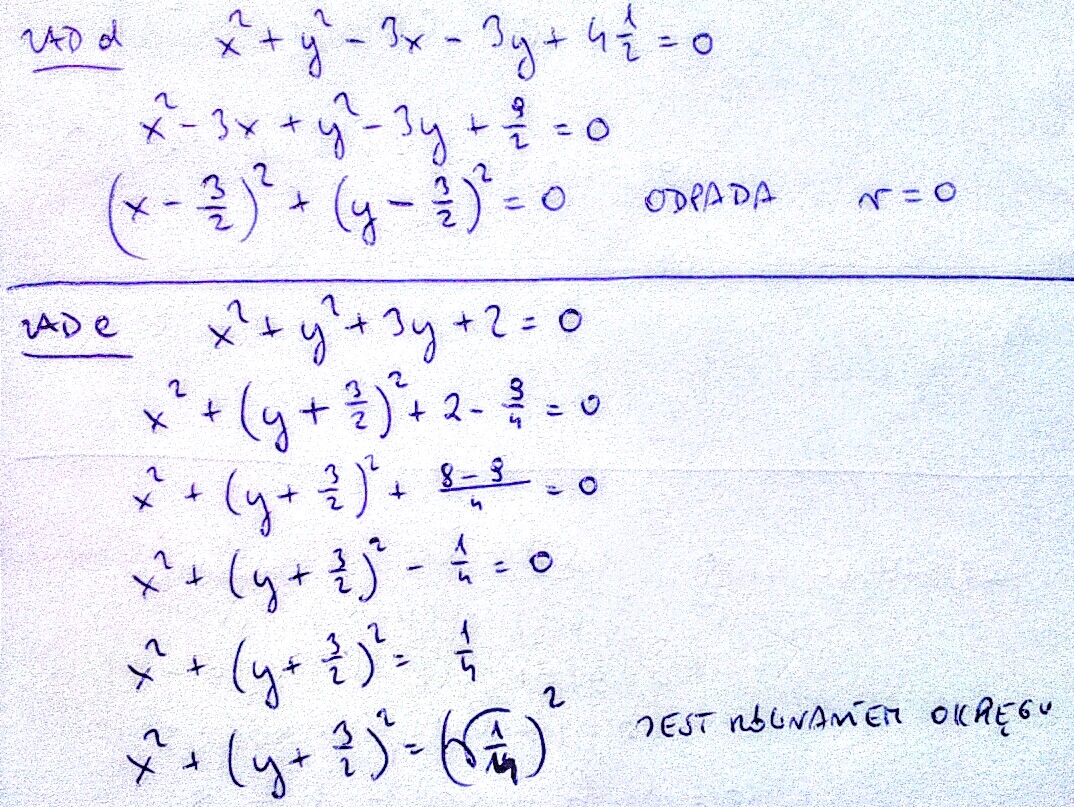 ZAD d x² + y² - 3x - 3y + 4 1/2 = 0
x² - 3x + y² - 3y + 9/2 = 0
(x - 3/2)² + (y - 3/2)² = 0 ODPADA r = 0
ZAD e x² + y² + 3y + 2 = 0
x² + (y + 3/2)² + 2 - 9/4 = 0
x² + (y + 3/2)² + (8 - 9)/4 = 0
x² + (y + 3/2)² - 1/4 = 0
x² + (y + 3/2)² = 1/4
x² + (y + 3/2)² = (√(1/4))² JEST RÓWNANIEM OKRĘGU